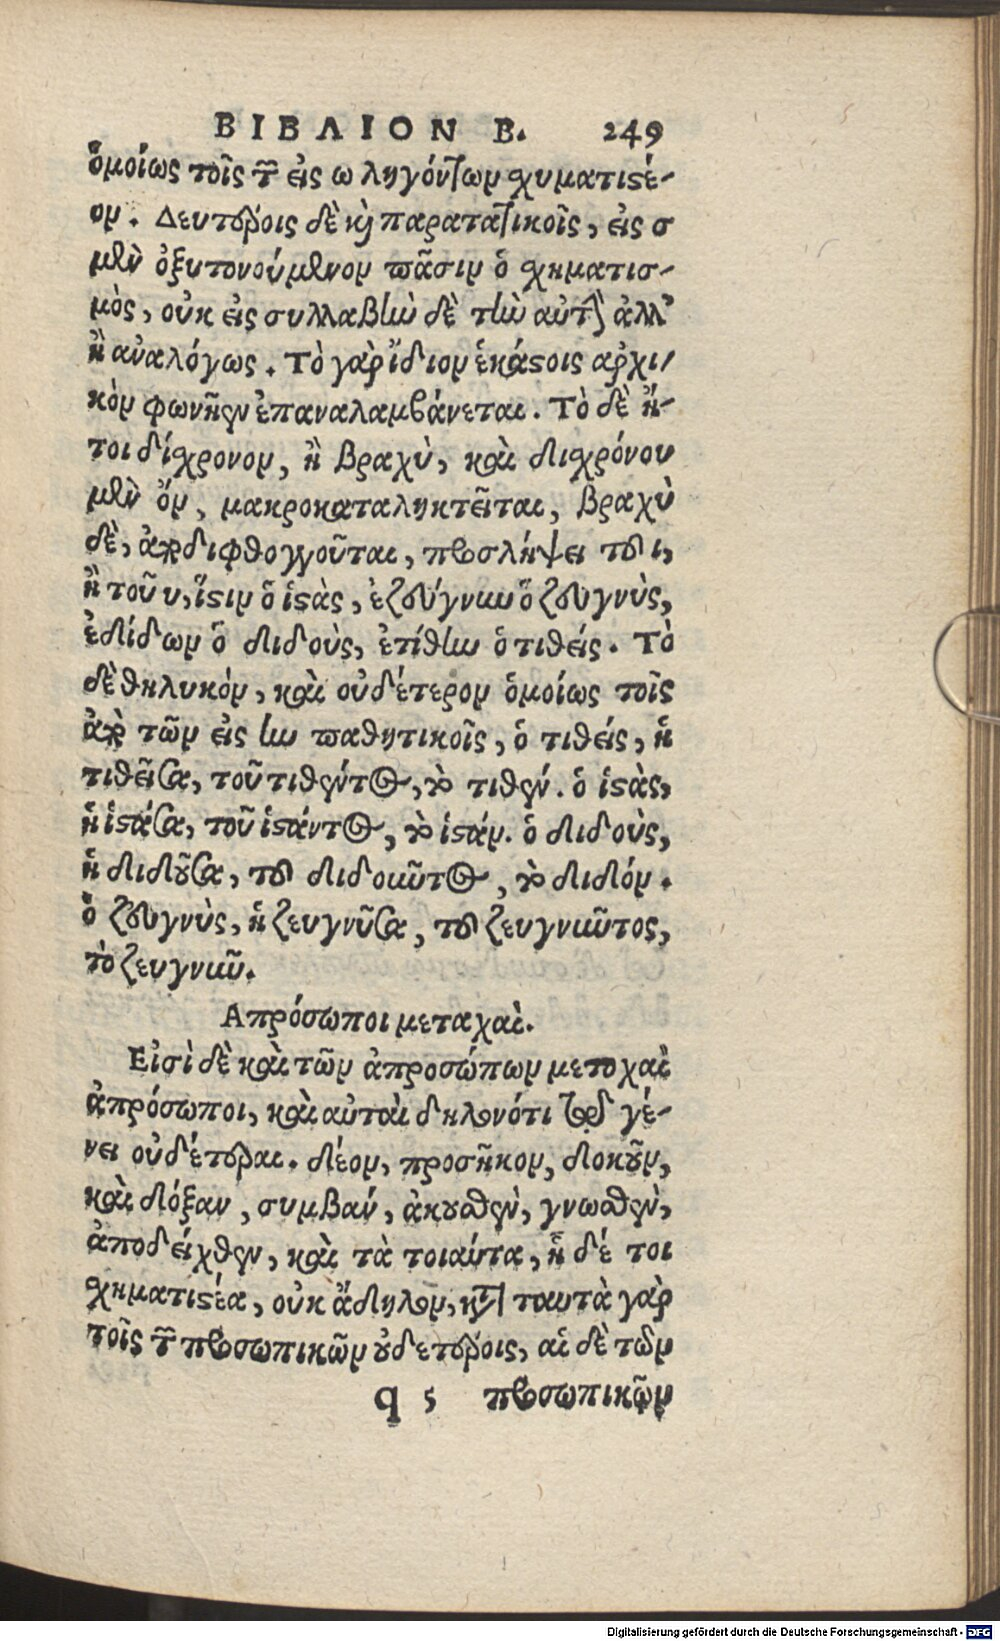 ΒΙΒΛΙΟΝ Β. 249
ὁμοίως τοῖς τῶν εἰς ω ληγόντων χυματιστέ-
ον. Δευτέροις δὲ καὶ παρατατικοῖς, εἰς σ
μὲν ὀξυτονούμενον πᾶσιν ὁ χηματισ-
μὸς, οὐκ εἰς συλλαβὴν δὲ τὴν αὐτὴν ἀλλ'
ἢ ἀναλόγως. Τὸ γὰρ ἴδιον ἑκάστοις ἀρχι-
κὸν φωνῆεν ἐπαναλαμβάνεται. Τὸ δὲ ἤ-
τοι δίχρονον, ἢ βραχὺ, καὶ διχρόνου
μὲν ὂν, μακροκαταληκτεῖται, βραχὺ
δὲ, παραδιφθογγοῦται, προσλήψει τοῦ ι,
ἢ τοῦ υ, ἵστην ὁ ἱστὰς, ἐζεύγνυν ὁ ζευγνὺς,
ἐδίδων ὁ διδοὺς, ἐτίθην ὁ τιθείς. Τὸ
δὲ θηλυκὸν, καὶ οὐδέτερον ὁμοίως τοῖς
παρὰ τῶν εἰς ην παθητικοῖς, ὁ τιθείς, ἡ
τιθεῖσα, τοῦ τιθέντος, τὸ τιθέν. ὁ ἱστὰς,
ἡ ἱστάσα, τοῦ ἱστάντος, τὸ ἱστάν. ὁ διδοὺς,
ἡ διδοῦσα, τοῦ διδοῦντος, τὸ διδόν.
ὁ ζευγνὺς, ἡ ζευγνῦσα, τοῦ ζευγνῦντος,
τὸ ζευγνῦν.
Απρόσωποι μεταχαὶ.
Εἰσὶ δὲ καὶ τῶν ἀπροσώπων μετοχαὶ
ἀπρόσωποι, καὶ αὐταὶ δηλονότι τοῦ γέ-
νει οὐδέτεραι. δέον, προσῆκον, δοκοῦν,
καὶ δόξαν, συμβαν, ἀκουσθὲν, γνωσθὲν,
ἀποδείχθεν, καὶ τὰ τοιαύτα, ᾗ δέ τοι
χηματιστέα, οὐκ ἄδηλον, κατὰ ταυτὰ γὰρ
τοῖς τῶν προσωπικῶν οὐδετέροις, αἱ δὲ τῶν
q 5 προσωπικῶν
Digitalisierung gefördert durch die Deutsche Forschungsgemeinschaft - DFG